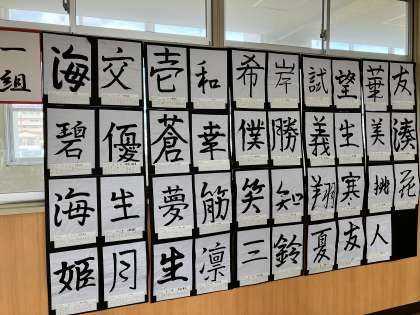 一組
海 交 壱 和 希 岸 試 望 華 友
碧 優 蒼 幸 僕 勝 義 生 美 湊
海 生 夢 筋 笑 知 翔 寒 挑
姫 月 生 凛 三 鈴 夏 友 人